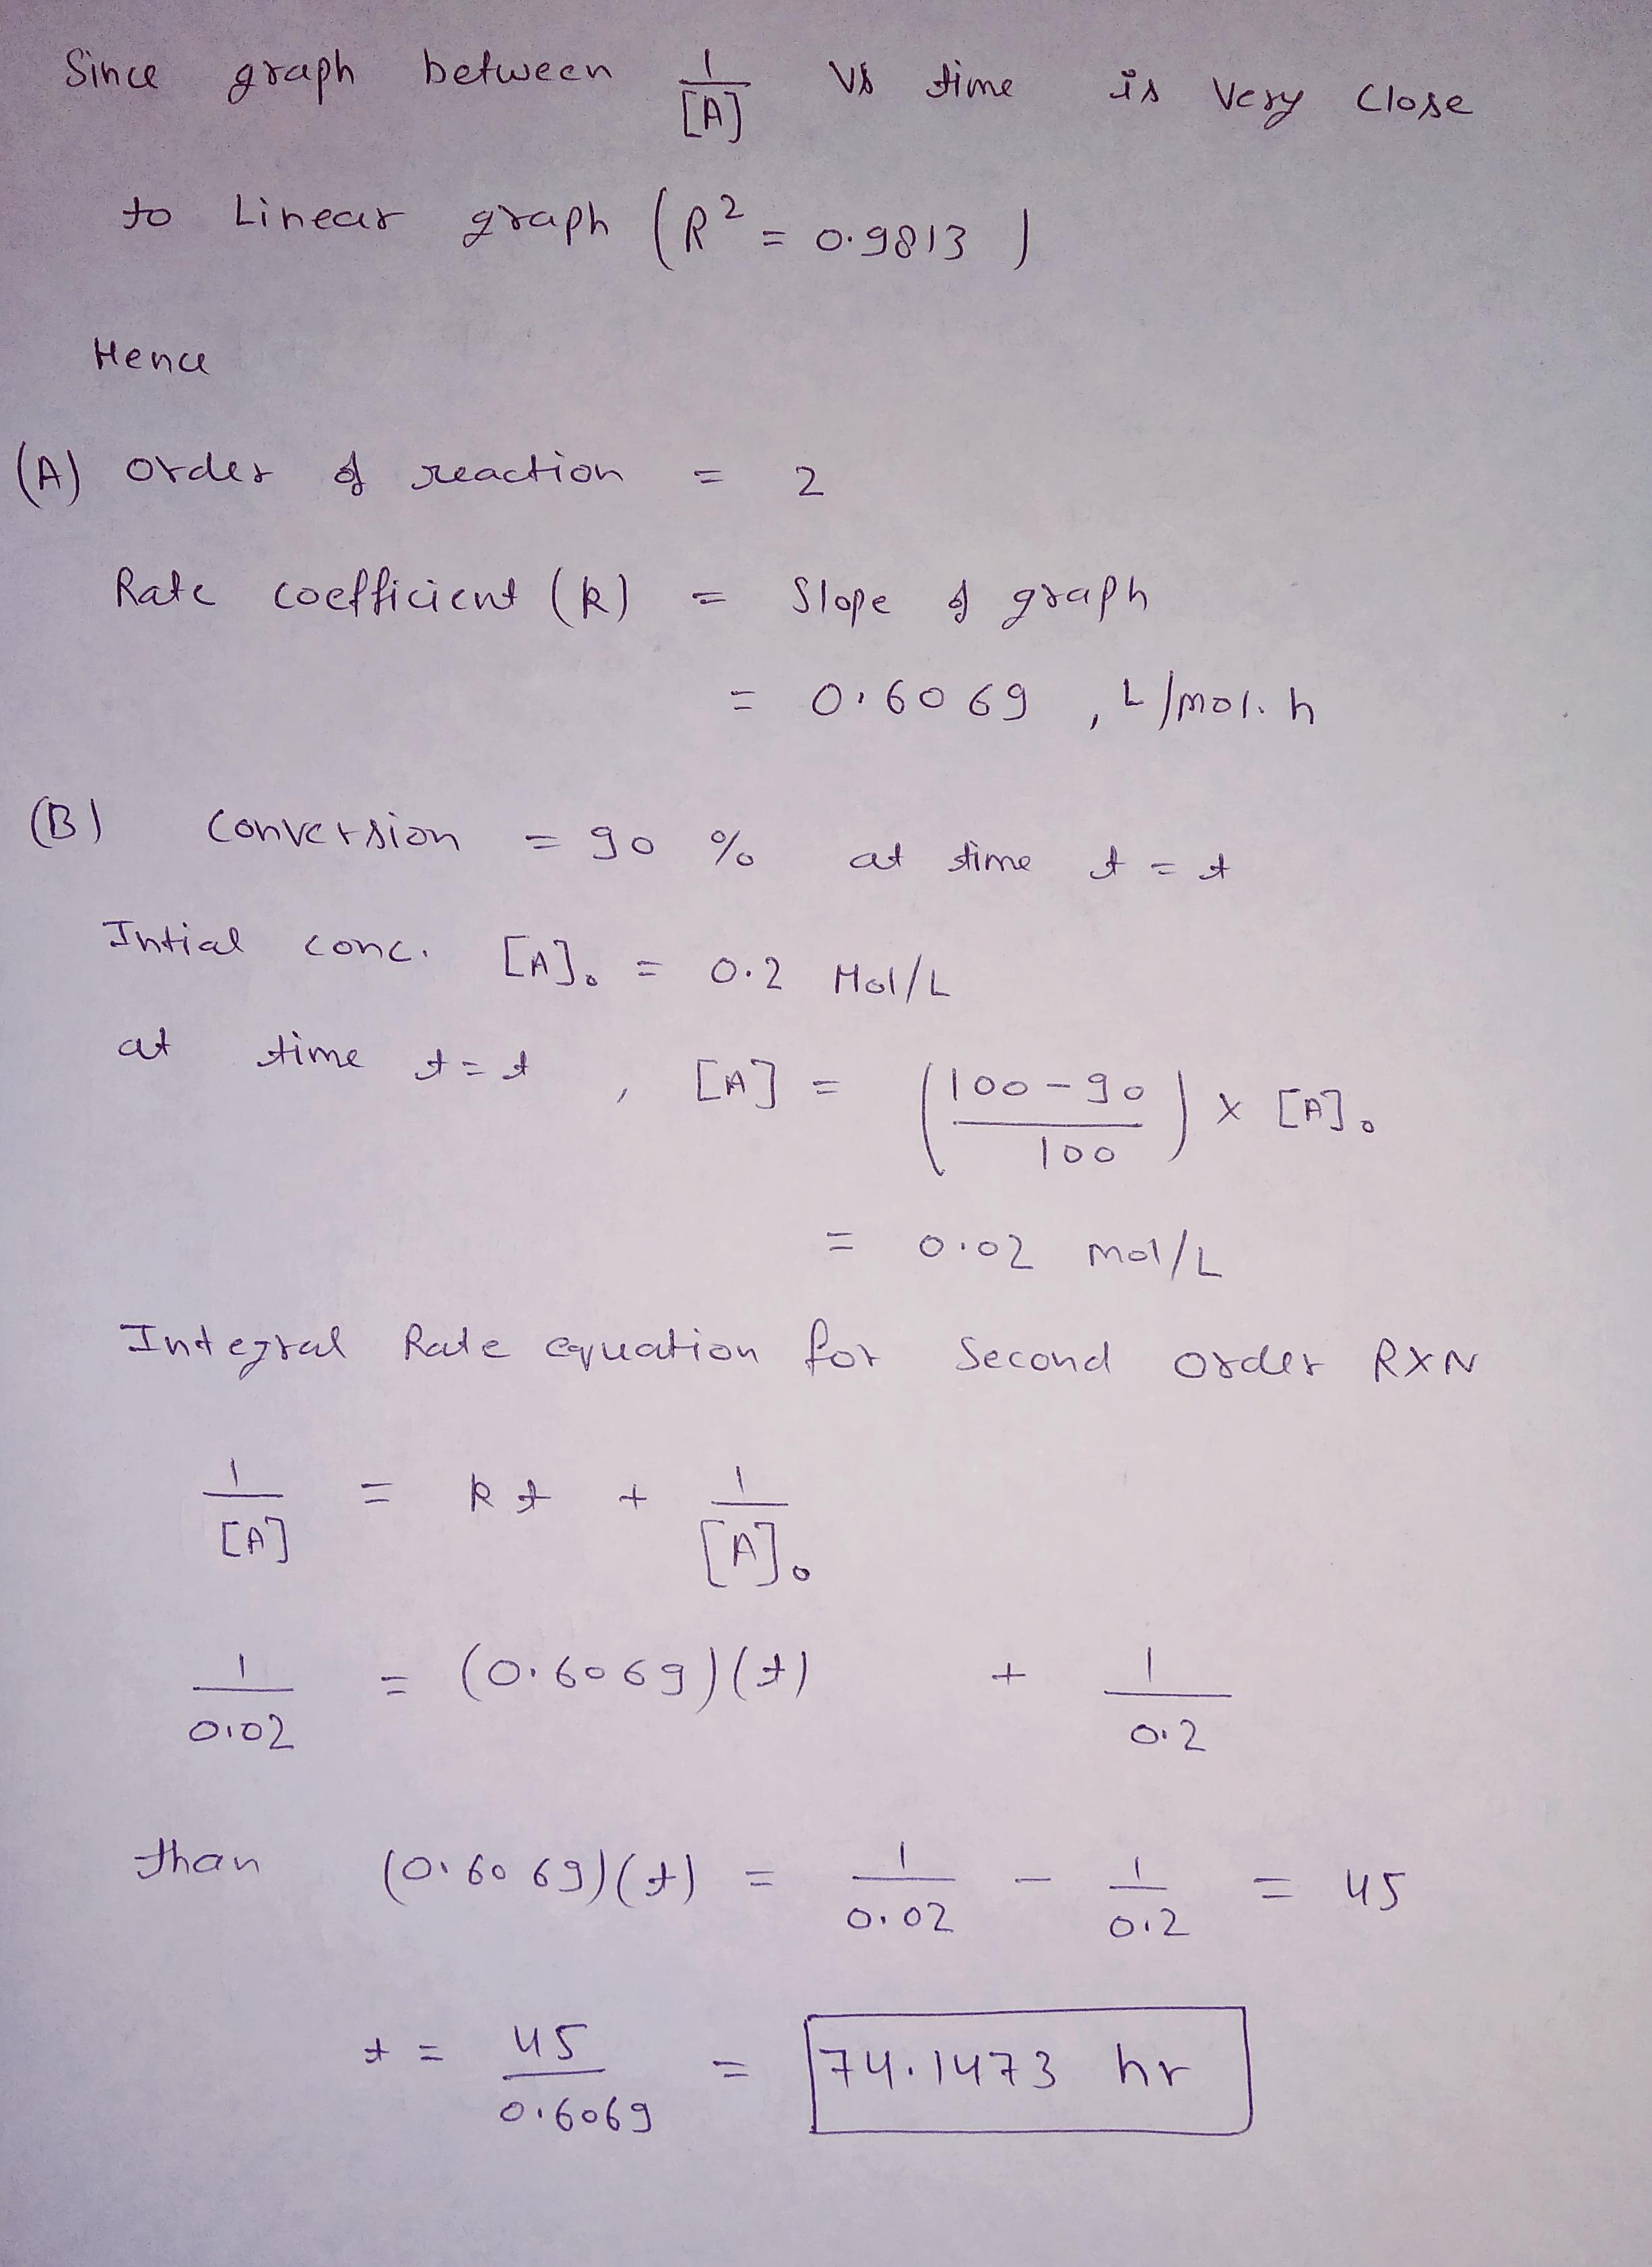 Since graph between 1/[A] Vs time is Very Close
to Linear graph (R² = 0.9813)
Hence
(A) order of reaction = 2
Rate coefficient (k) = Slope of graph
= 0.6069 , L/mol.h
(B) Conversion = 90 % at time t = t
Intial conc. [A]₀ = 0.2 Mol/L
at time t = t , [A] = ((100 - 90)/100) × [A]₀
= 0.02 mol/L
Integral Rate equation for Second order RXN
1/[A] = kt + 1/[A]₀
1/0.02 = (0.6069)(t) + 1/0.2
than (0.6069)(t) = 1/0.02 - 1/0.2 = 45
t = 45/0.6069 = 74.1473 hr